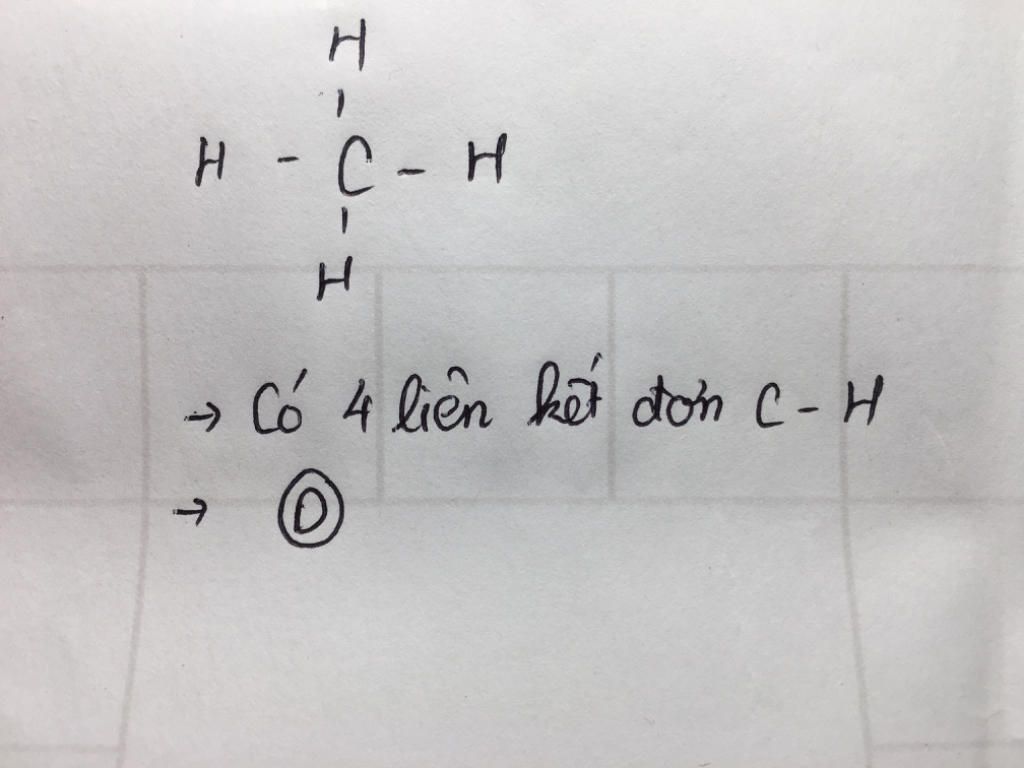 H
H - C - H
H
→ Có 4 liên kết đơn C - H
→ D